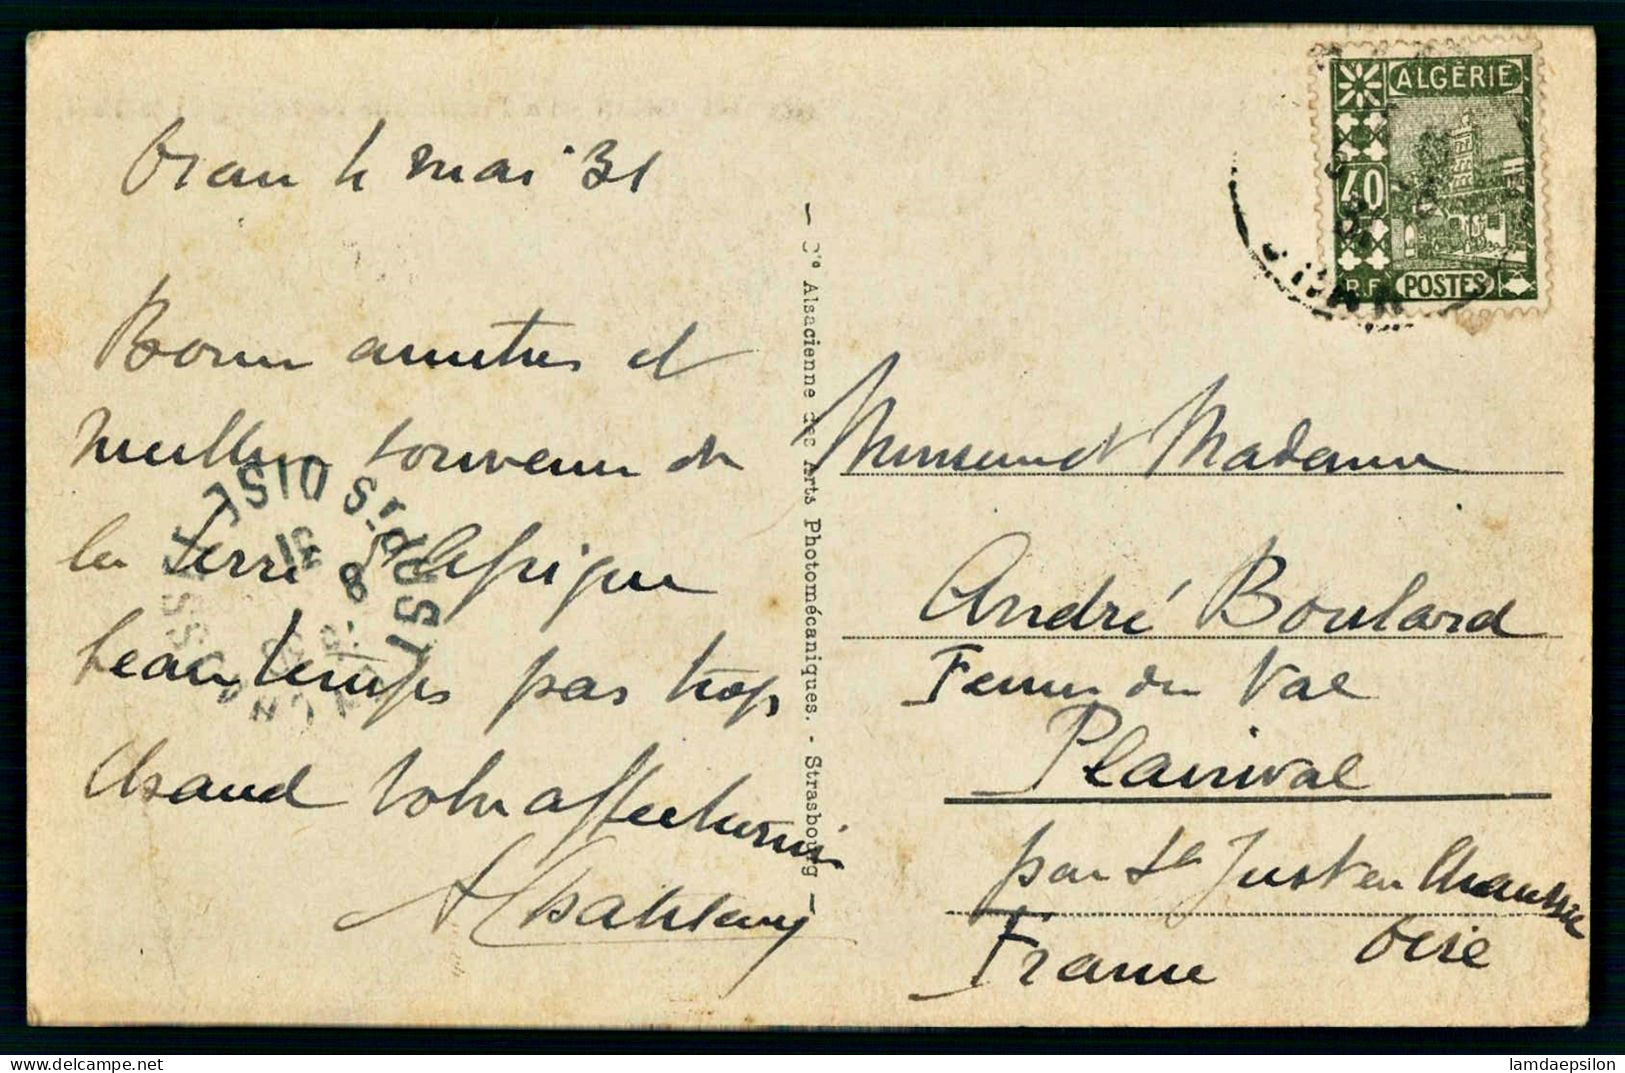 Oran 4 mai 31
Bonnes amitiés et
meilleur souvenir de
la Terre d'Afrique
beau temps pas trop
chaud Votre affectionné
Cie Alsacienne des Arts Photomécaniques. - Strasbourg
ALGÉRIE
40
R.F. POSTES
Monsieur et Madame
André Boulard
Ferme du Val
Plainval
par St Just en Chaussée
Oise
France
ST JUST EN CHAUSSEE OISE
lamdaepsilon